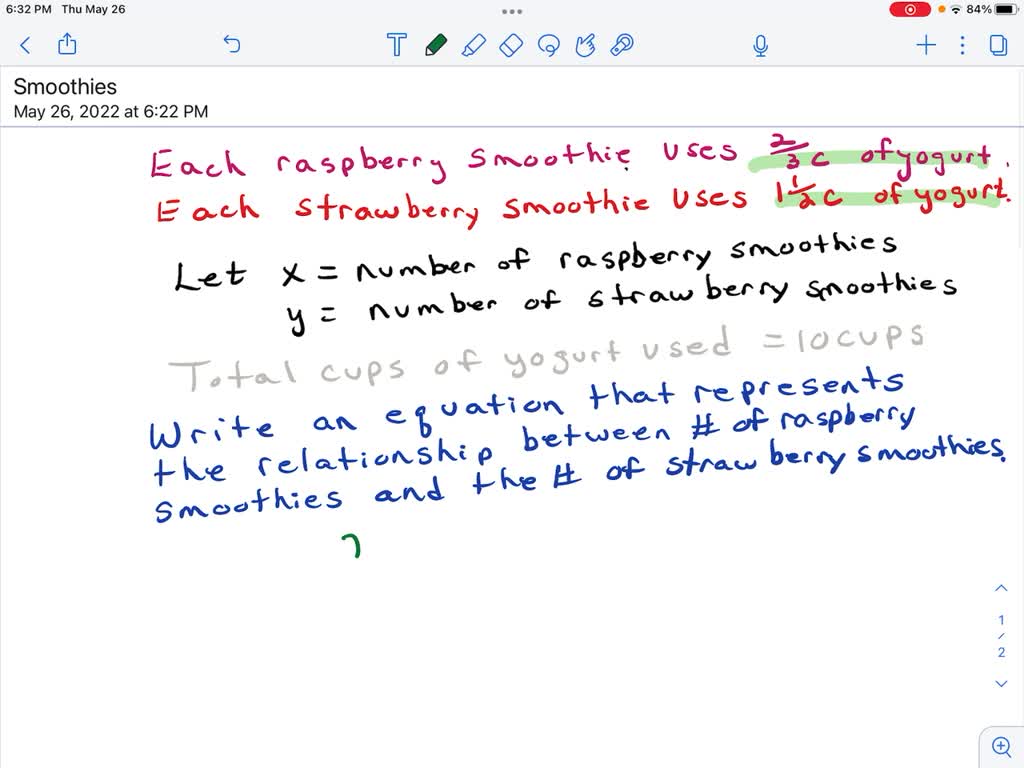 6:32 PM Thu May 26
84%
Smoothies
May 26, 2022 at 6:22 PM
Each raspberry smoothie uses 2/3 c of yogurt.
Each strawberry smoothie uses 1 1/2 c of yogurt.
Let x = number of raspberry smoothies
y = number of strawberry smoothies
Total cups of yogurt used = 10 cups
Write an equation that represents
the relationship between # of raspberry
smoothies and the # of strawberry smoothies.
1
/
2